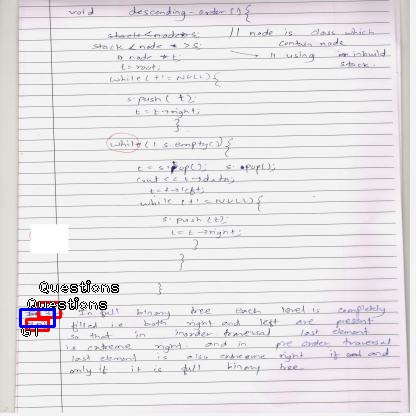 void descending-order() {
stack<node>s; // node is class which
stack < node * > s; contain node
node *t; // using inbuild
t = root; stack.
while(t != NULL) {
s.push( t );
t = t→right;
}
while( ! s.empty() ) {
t = s.top(); s.pop();
cout << t→data;
t = t→left;
while (t != NULL) {
s.push(t);
t = t→right;
}
}
}
Questions
Questions
In full binary tree each level is completely
filled i.e. both right and left are present
so that in inorder traversal last element
is extreme right. and in pre order traversal
last element is also extreme right if and
only if it is full binary tree.